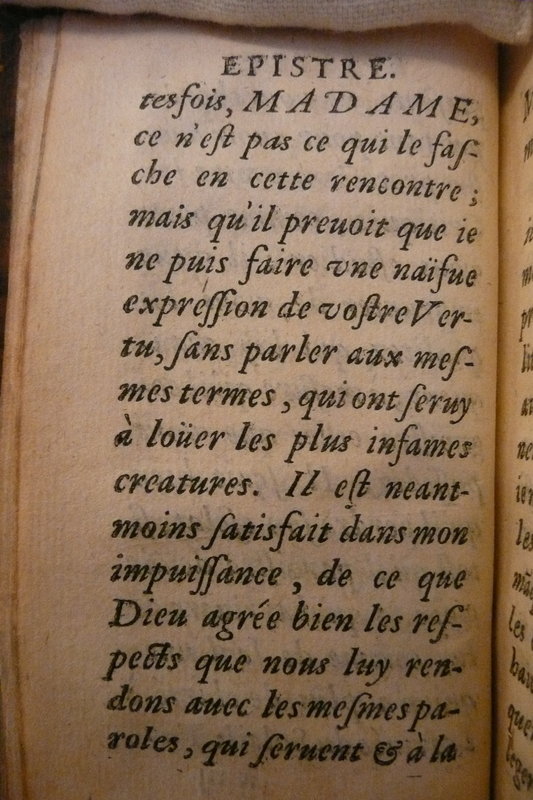 EPISTRE.
tesfois, MADAME,
ce n'eſt pas ce qui le faſ-
che en cette rencontre ;
mais qu'il preuoit que ie
ne puis faire vne naïfue
expreſſion de voſtre Ver-
tu, ſans parler aux meſ-
mes termes , qui ont ſeruy
à loüer les plus infames
creatures. Il eſt neant-
moins ſatisfait dans mon
impuiſſance , de ce que
Dieu agrée bien les reſ-
pects que nous luy ren-
dons auec les meſmes pa-
roles , qui ſeruent & à la